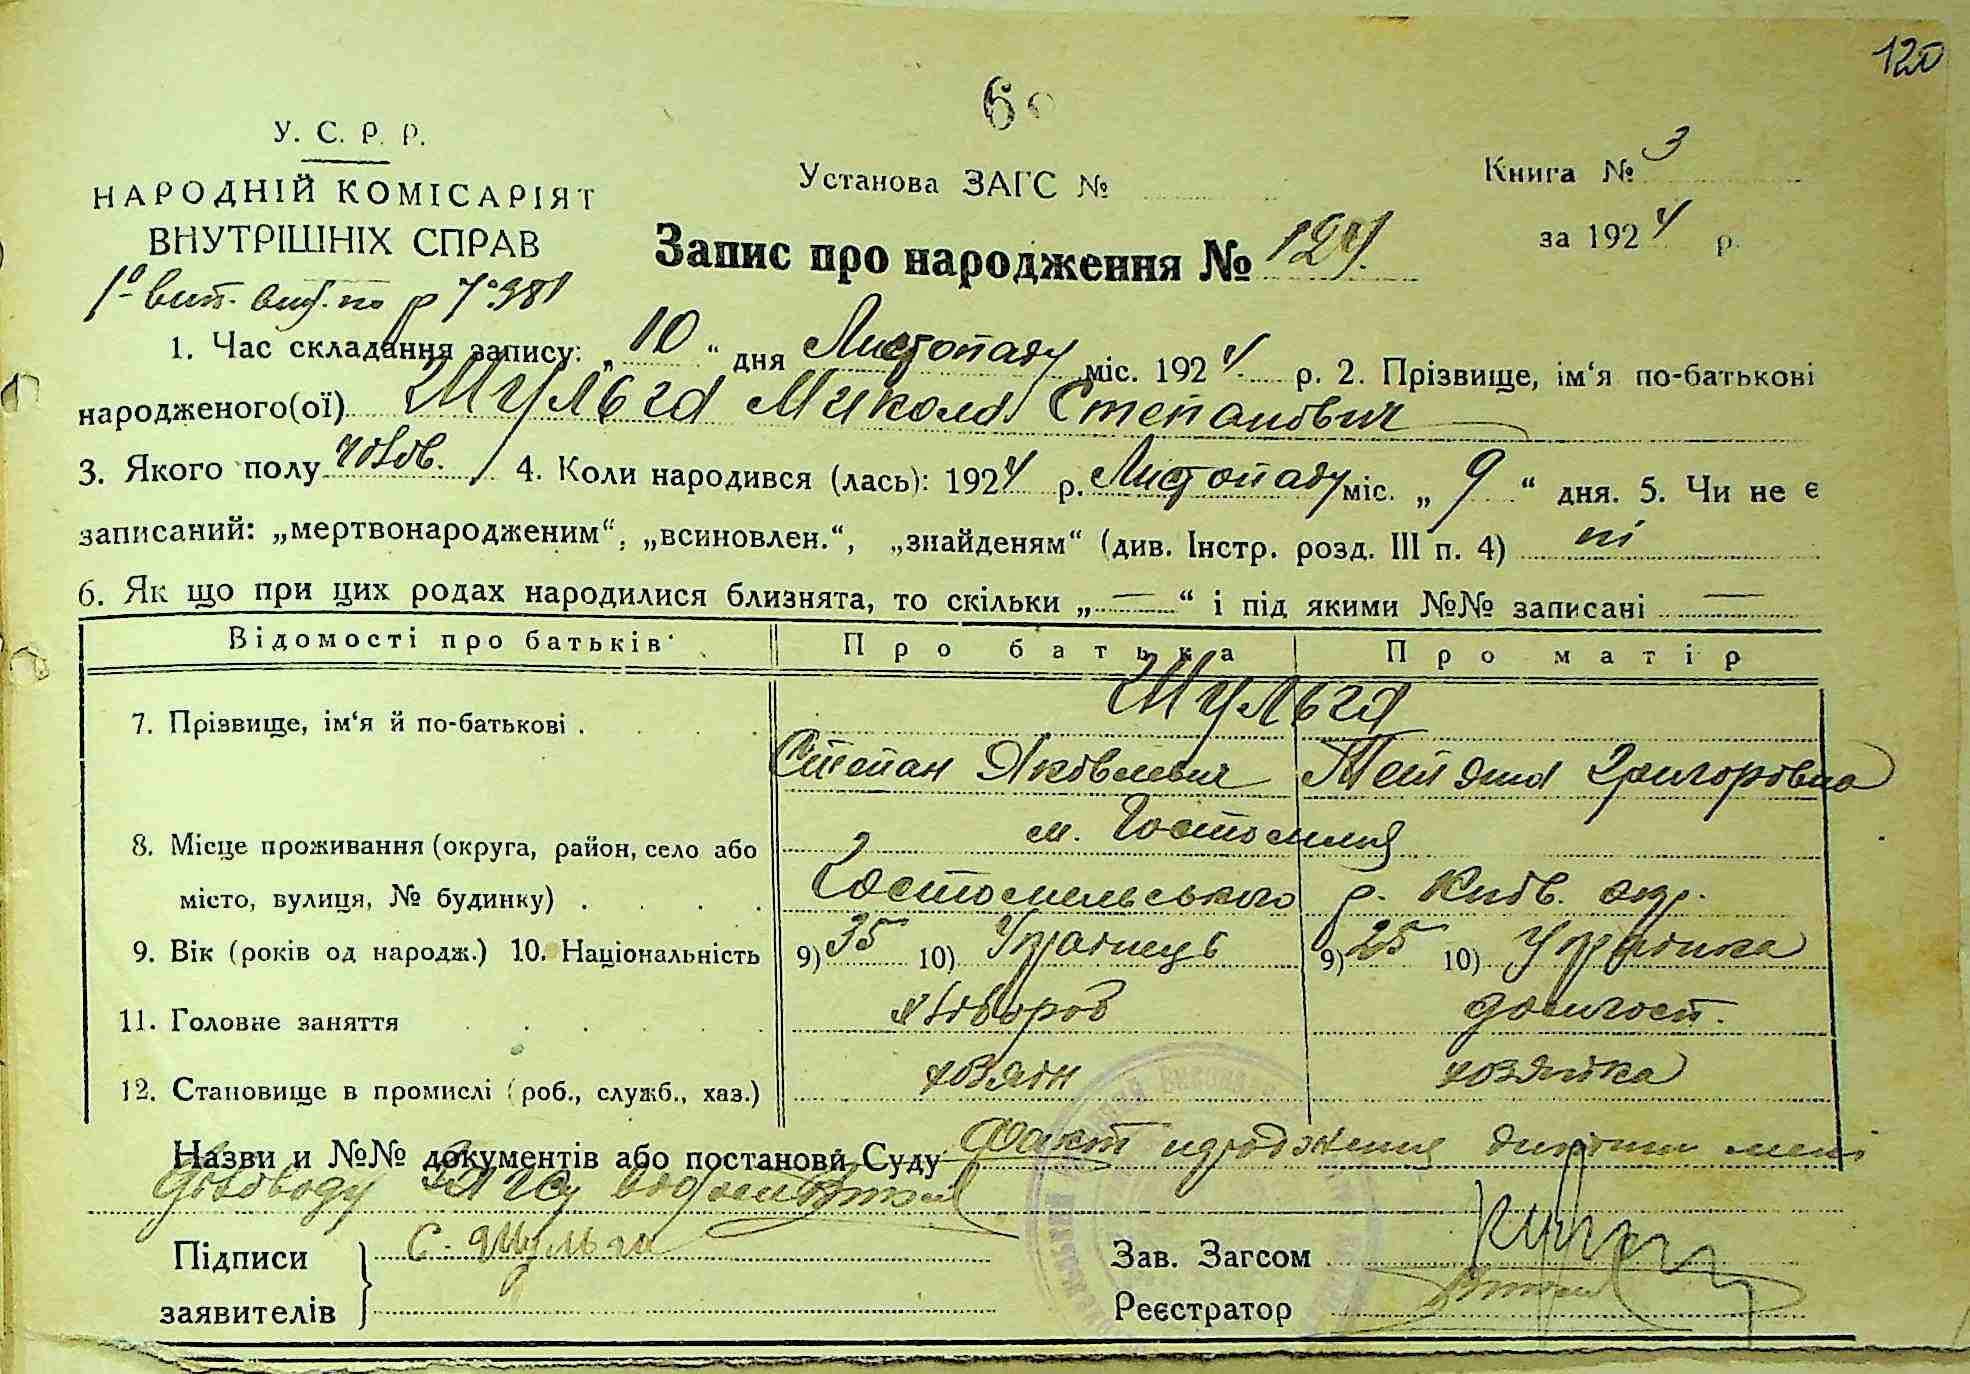 120
6
У. С. Р. Р.
НАРОДНІЙ КОМІСАРІЯТ
ВНУТРІШНІХ СПРАВ
Установа ЗАГС №
Книга № 3
за 1924 р.
Запис про народження № 124.
1. Час складання запису: „10“ дня Листопаду міс. 1924 р. 2. Прізвище, ім‘я по-батькові
народженого(ої) Шульга Микола Степанович
3. Якого полу чолов. 4. Коли народився (лась): 1924 р. Листопаду міс. „9“ дня. 5. Чи не є
записаний: „мертвонародженим“, „всиновлен.“, „знайденям“ (див. Інстр. розд. III п. 4) ні
6. Як що при цих родах народилися близнята, то скільки „—“ і під якими №№ записані —
Відомості про батьків
Про батька
Про матір
7. Прізвище, ім‘я й по-батькові . . . .
Шульга
Степан Яковлевич
Тетяна Григоровна
8. Місце проживання (округа, район, село або
місто, вулиця, № будинку) . . . .
м. Гостомля
Гостомельського р. Київ. окр.
9. Вік (років од народж.) 10. Національність
9) 35 10) Українець
9) 25 10) Українка
11. Головне заняття . . . . .
хлібороб
домгосп.
12. Становище в промислі (роб., служб., хаз.)
хозяїн
хозяйка
Назви и №№ документів або постанови Суду Факт народження дитини мені
діловоду ЗАГСу
Підписи
заявителів
С. Шульга
Зав. Загсом
Реєстратор